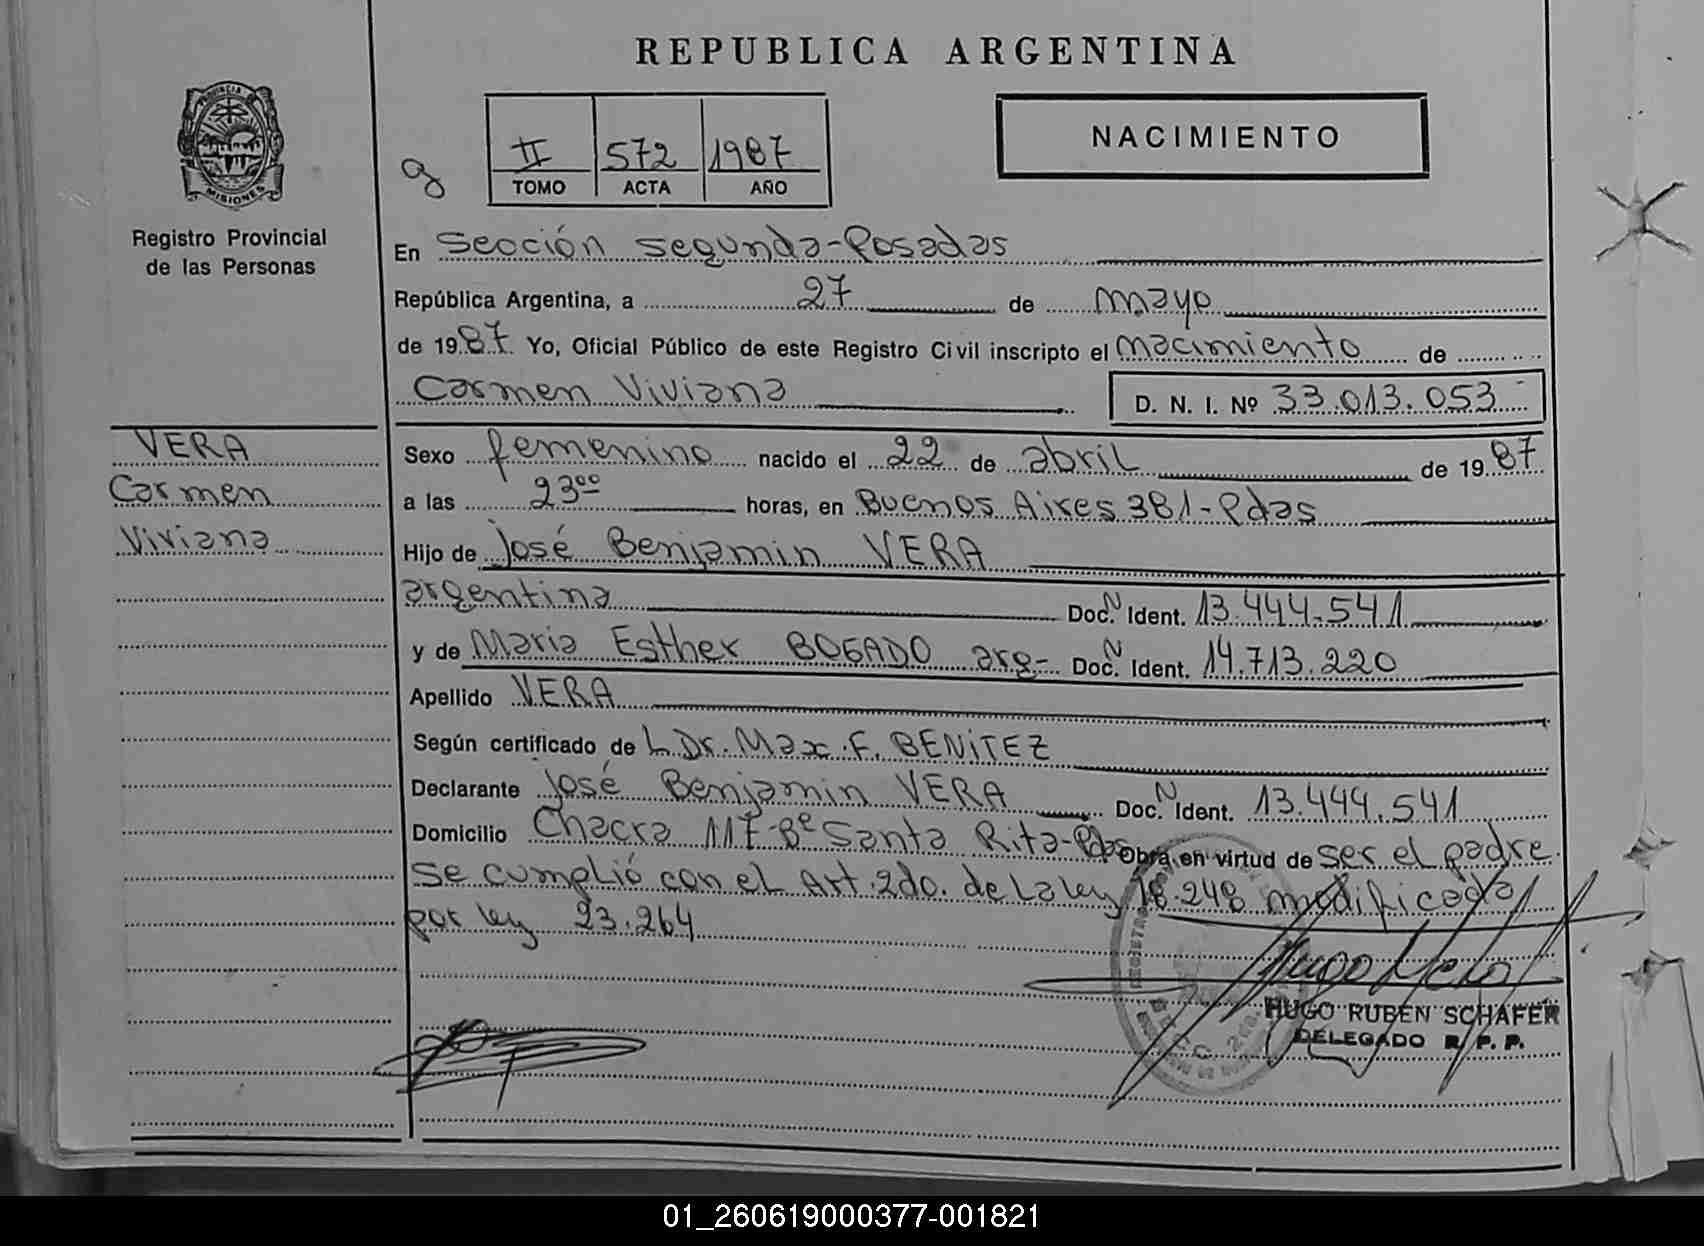 REPUBLICA ARGENTINA
PROVINCIA DE
MISIONES
Registro Provincial
de las Personas
II 572 1987
TOMO ACTA AÑO
NACIMIENTO
En Sección Segunda-Posadas
República Argentina, a 27 de mayo
de 1987. Yo, Oficial Público de este Registro Civil inscripto el nacimiento de
Carmen Viviana D. N. I. Nº 33.013.053
VERA
Carmen
Viviana
Sexo femenino nacido el 22 de abril de 1987
a las 23⁰⁰ horas, en Buenos Aires 381-Pdas
Hijo de José Benjamin VERA
argentina Doc. N Ident. 13.444.541
y de Maria Esther BOGADO arg- Doc. N Ident. 14.713.220
Apellido VERA
Según certificado de L Dr. Max. F. BENITEZ
Declarante José Benjamin VERA Doc. N Ident. 13.444.541
Domicilio Chacra 117-Bº Santa Rita-Pdas Obra en virtud de ser el padre
Se cumplió con el Art. 2do. de la ley 18.248 modificada
por ley 23.264
HUGO RUBEN SCHAFER
DELEGADO R. P. P.
01_260619000377-001821